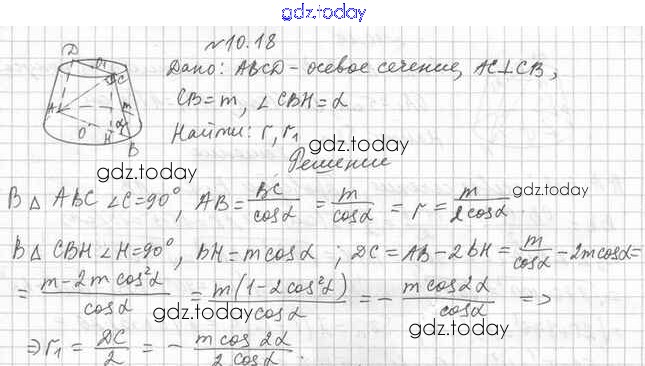 gdz.today
№10.18
Дано: ABCD - осевое сечение, AC⊥CB,
CB=m, ∠CBH=α
Найти: r, r₁
gdz.today
Решение
gdz.today
В △ ABC ∠C=90°, AB = BC/cosα = m/cosα = r = m/2cosα
gdz.today
В △ CBH ∠H=90°, BH = m cosα ; DC = AB - 2BH = m/cosα - 2m cosα =
= m - 2m cos²α / cosα = m(1 - 2cos²α) / cosα = - m cos2α / cosα =>
gdz.today
gdz.today
=> r₁ = DC/2 = - m cos 2α / 2 cosα .
D O₁ C A m α O H B